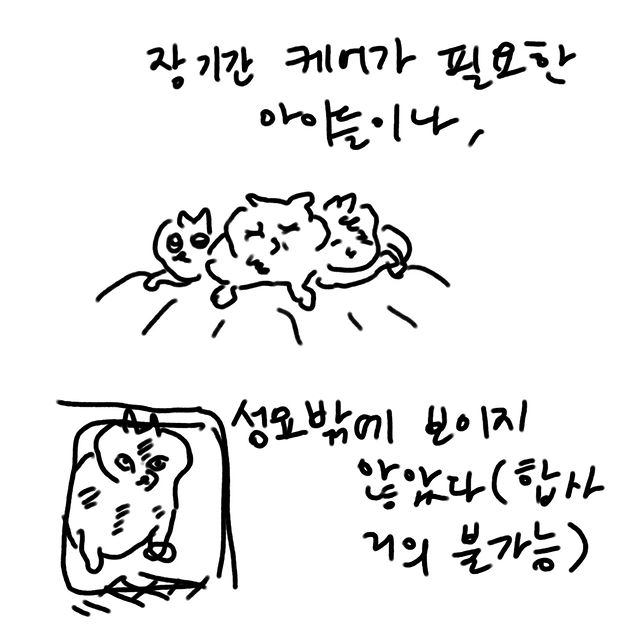 장기간 케어가 필요한
아이들이나,
성묘밖에 보이지
않았다(합사
거의 불가능)